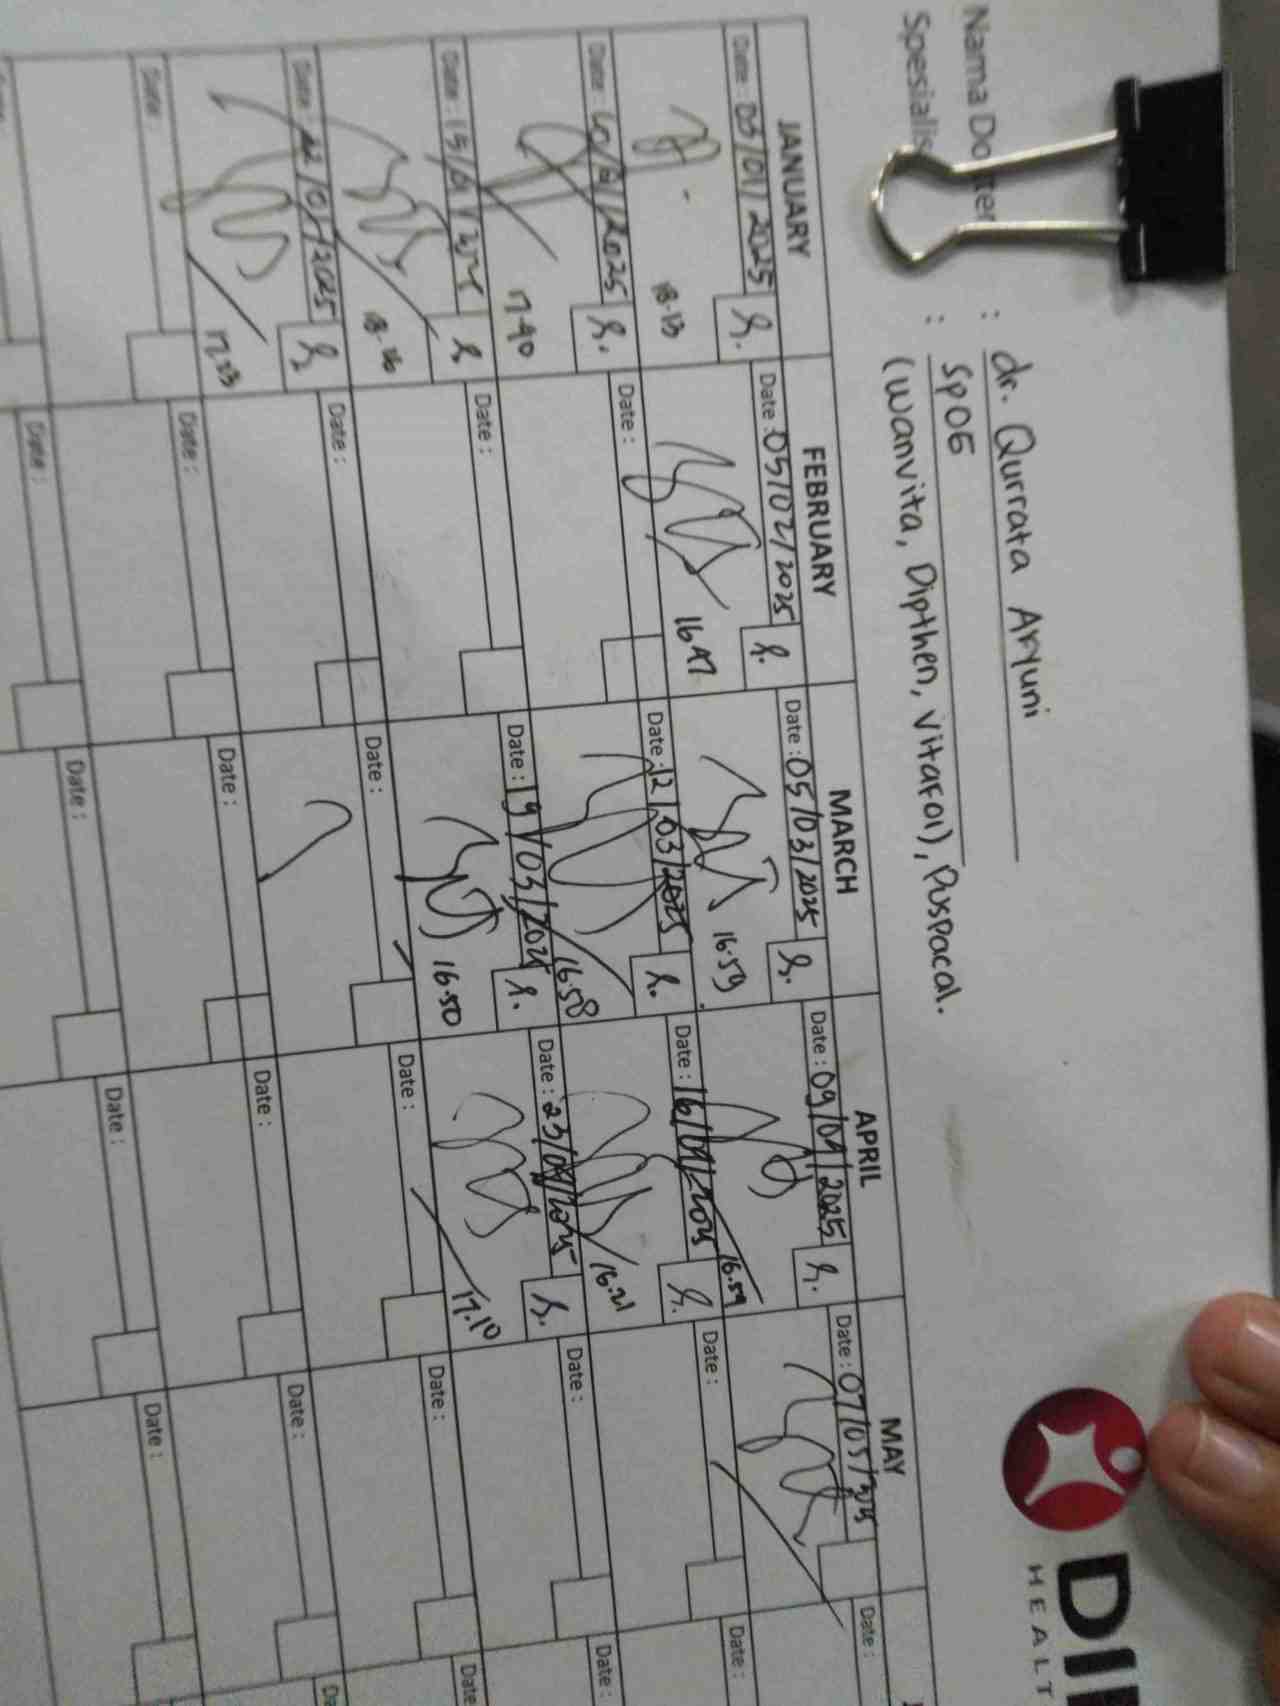 Nama Dokter : dr. Qurrata Aryuni
Spesialis : SpOG
(Wanvita, Dipthen, Vitafol), Puspacal.
HEALT
JANUARY FEBRUARY MARCH APRIL MAY
Date : 03/01/2025 Date : 05/02/2025 Date : 05/03/2025 Date : 09/04/2025 Date : 07/05/2025 Date :
18.13 16.47 16.59 16.59
Date : Date : Date : 12/03/2025 Date : 16/04/2025 Date : Date :
17.40 16.58 16.21
Date : 15/01/2025 Date : Date : 19/03/2025 Date : 23/04/2025 Date : Date :
18.16 16.50 17.10
Date : 22/01/2025 Date : Date : Date : Date : Date
17.53
Date : Date : Date : Date : Date :
Date : Date : Date : Date :